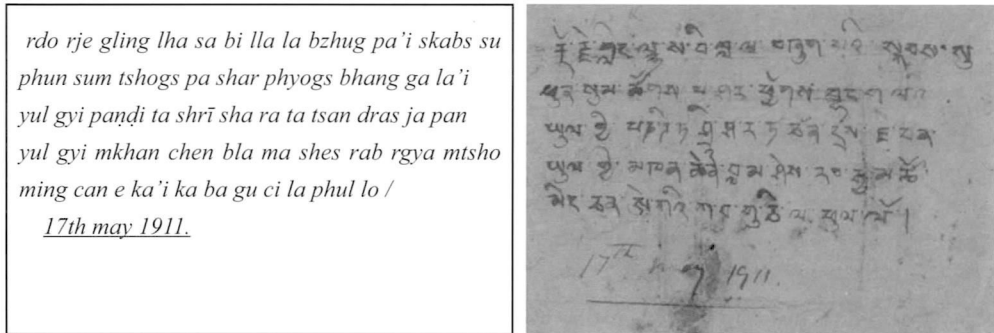 rdo rje gling lha sa bi lla la bzhug pa’i skabs su
phun sum tshogs pa shar phyogs bhang ga la’i
yul gyi paṇḍi ta shrī sha ra ta tsan dras ja pan
yul gyi mkhan chen bla ma shes rab rgya mtsho
ming can e ka’i ka ba gu ci la phul lo /
17th may 1911.
རྡོ་རྗེ་གླིང་ལྷ་ས་བི་ལླ་ལ་བཞུག་པའི་སྐབས་སུ
ཕུན་སུམ་ཚོགས་པ་ཤར་ཕྱོགས་བྷང་ག་ལའི
ཡུལ་གྱི་པཎྜི་ཏ་ཤྲཱི་ཤ་ར་ཏ་ཙན་དྲས་ཇ་པན
ཡུལ་གྱི་མཁན་ཆེན་བླ་མ་ཤེས་རབ་རྒྱ་མཚོ
མིང་ཅན་ཨེ་ཀའི་ཀ་བ་གུ་ཅི་ལ་ཕུལ་ལོ །
17th 1911.